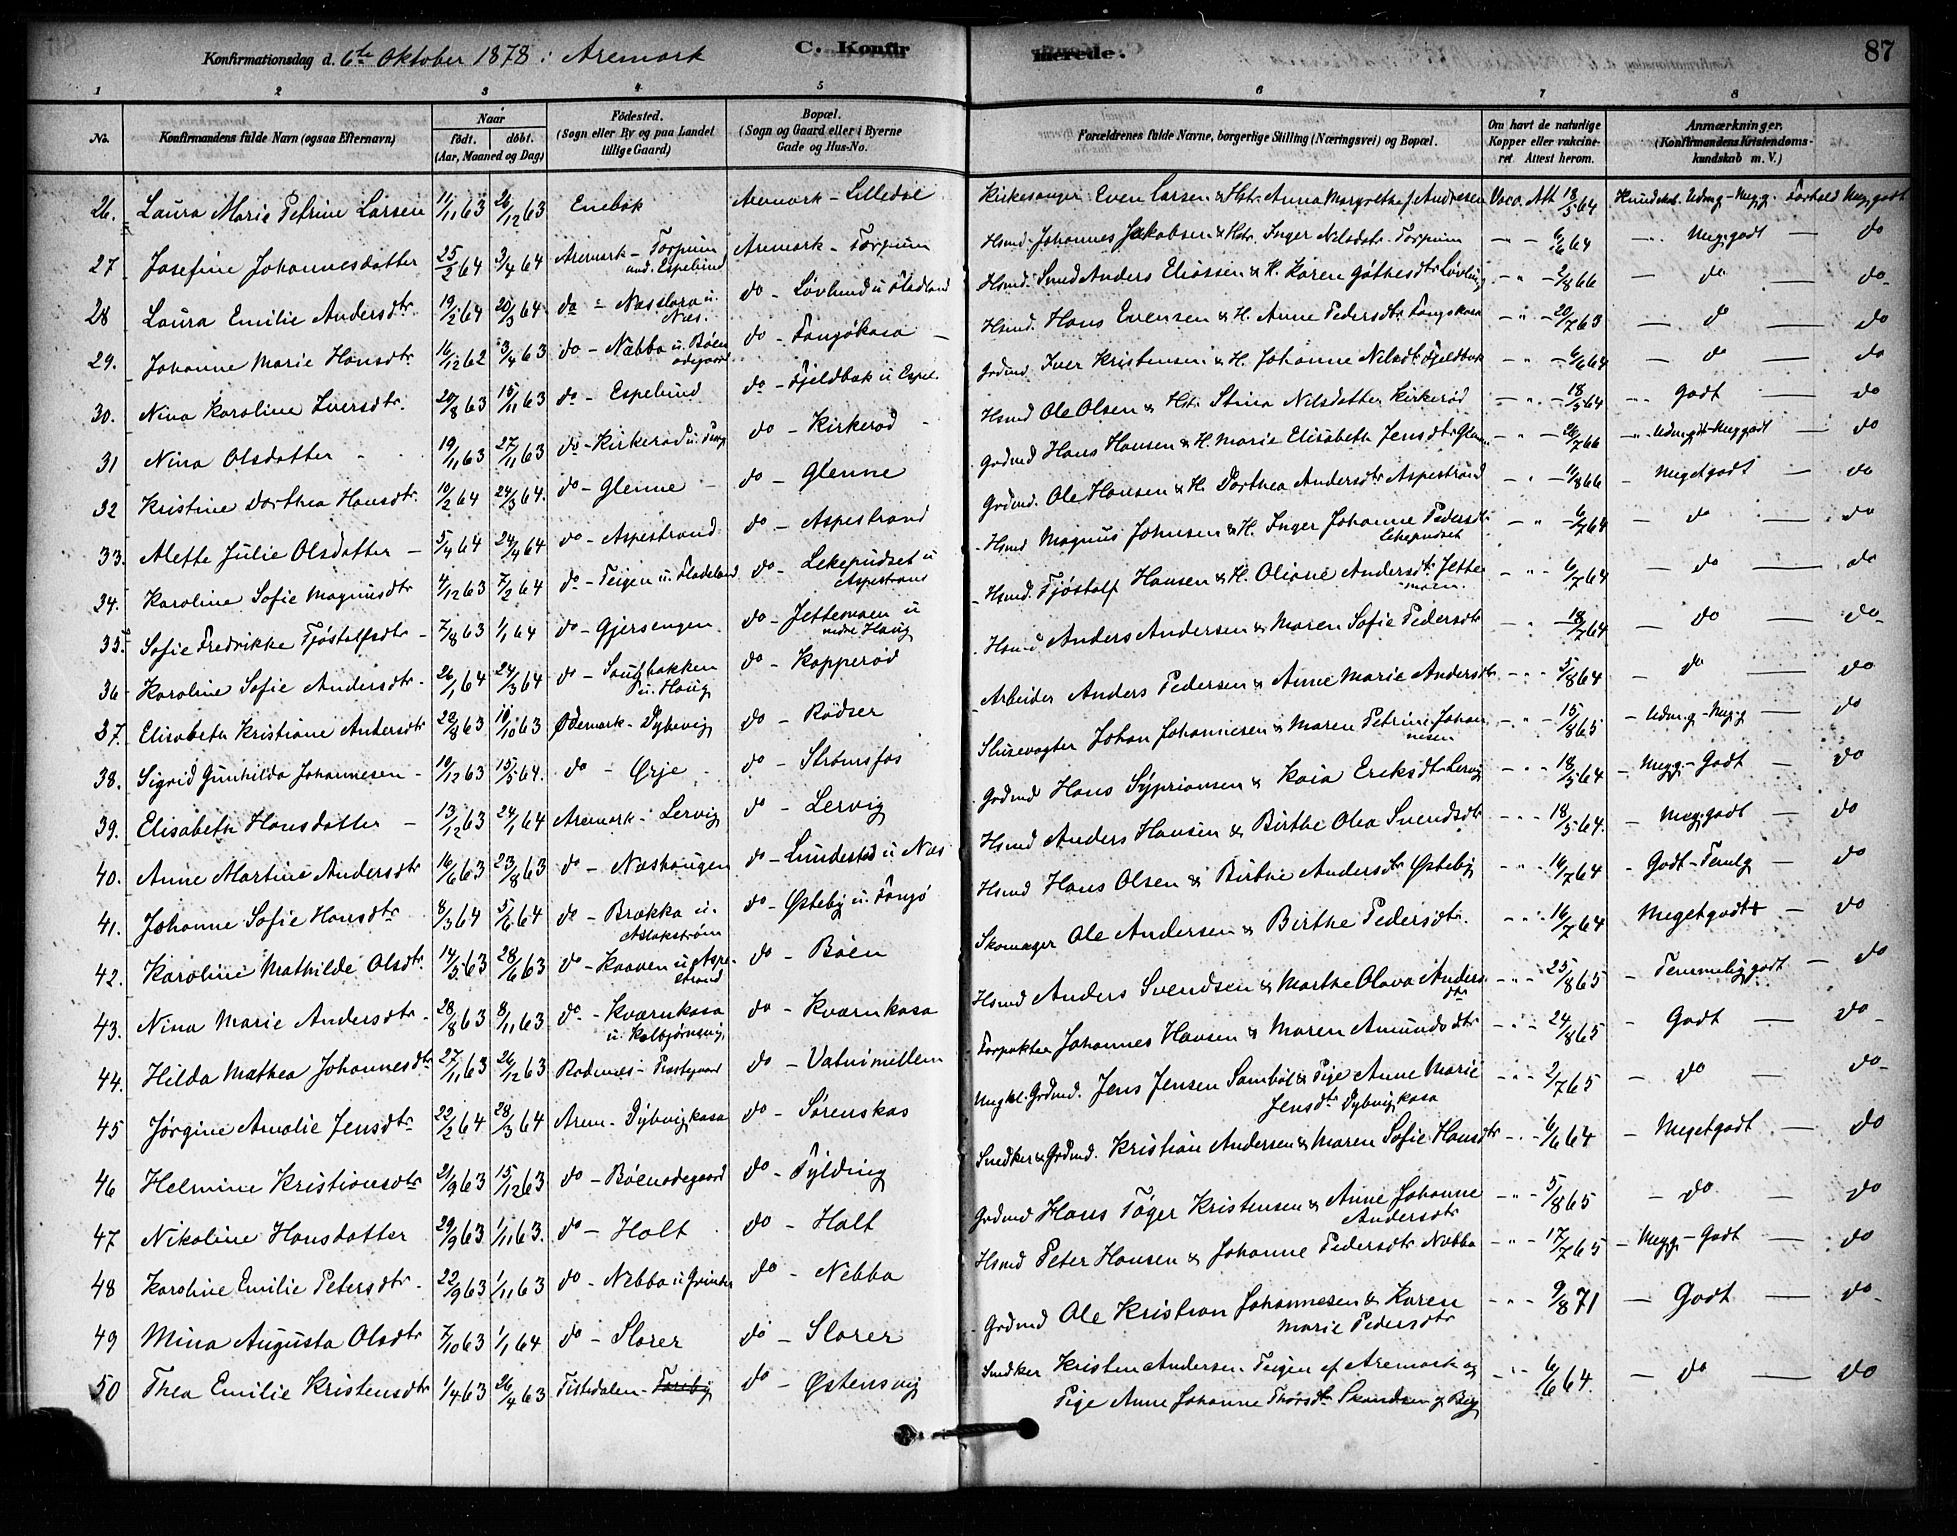 Konfirmationsdag d. 6te Oktober 1878 i Aremark C. Konfirmerede. 87
1 2 3 4 5 6 7 8
No. Konfirmandens fulde Navn (ogsaa Efternavn) Naar født. døbt. (Aar, Maaned og Dag) Fødested. (Sogn eller By og paa Landet tillige Gaard) Bopæl. (Sogn og Gaard eller i Byerne Gade og Hus-No. Forældrenes fulde Navne, borgerlige Stilling (Næringsvei) og Bopæl. Om havt de naturlige Kopper eller vaccineret. Attest herom. Anmærkninger. (Konfirmandens Kristendomskundskab m. V.)
26. Laura Marie Petrine Larsen 11/11 63 26/12 63 Enebak Aremark - Lilledal Kirkesanger Even Larsen & Hstr. Anna Margrethe f. Andresen Vacc. Att 18/5 64 Kundskab. Udm.g - Meg.g. Forhold Meg. godt
27 Josefine Johannesdatter 25/2 64 3/4 64 Aremark - Torpum und. Espelund Aremark - Torpum Hsmd. Johannes Jakobsen & Hstr. Inger Nilsdatr. Torpum - " - 6/6 64 - " Meg. godt — do
28 Laura Emilie Andersdtr. 19/2 64 20/3 64 do - Næsslora u. Næs. do - Løvlund u Fladland Hsmd. Smed Anders Eliassen & H. Karen Gøthesdtr Løvlun - " - 2/8 66 — do — do
29. Johanne Marie Hansdtr 16/12 62 3/4 63 do - Nabba u. Bøen ødegaard do - Tangøkasa — Hsmd. Hans Evensen & H. Anne Pedersdtr. Tangekasa - " - 20/7 63 — do — do
30. Nina Karoline Iversdtr. 20/8 63 15/11 63 do - Espelund do - Fjeldbak u Espel. Grdmd. Iver Kristensen & H. Johanne Nilsdtr. Fjeldbak - " - 6/6 64 — do — do
31 Nina Olsdatter 19/11 63 27/11 63 do - Kirkerød u. do - Kirkerød Hsmd Ole Olsen & Hstr. Stina Nilsdatter Kirkerød - " - 18/5 64 - " Godt — do
32 Kristine Dorthea Hansdtr. 10/2 64 24/3 64. do - Glenne do - Glenne Grdmd Hans Hansen & H. Marie Elisabeth Jensdtr Glenne - " - 26/7 66 - " Udm.gdt-Meg godt — do
33. Alette Julie Olsdatter — 5/4 64 24/4 64 do - Aspestrand do - Aspestrand Grdmd. Ole Hansen & H. Dorthea Andersdtr Aspestrand - " - 11/8 66 — Megetgodt — do
34. Karoline Sofie Magnusdtr 4/12 63 7/2 64 do - Teigen u. Fladeland do - Lekepudset u Aspestrand Hsmd Magnus Johnsen & H. Inger Johanne Pedersdtr. Lekepudset - " - 6/7 64 — do — do
35. Sofie Fredrikke Tjøstolfsdtr - 7/8 63 1/1 64 do - Gjersengen do - Jettemoen u nedre Haug Hsmd. Tjøstolf Hansen & H. Oliane Andersdtr. Jettemoen - " - 6/7 64 — do — do
36 Karoline Sofie Andersdtr. 26/1 64 24/3 64 do - Saugbakken u. Haug do - Kopperød Hsmd Anders Andersen & Maren Sofie Pedersdtr - " - 18/7 64 — do — do
37. Elisabeth Kristiane Andersdtr 20/8 63 10/10 63 Ødemark - Dybevig do - Rødser Arbeider Anders Pedersen & Anne Marie Andersdtr - " - 5/8 64 — do — do
38. Sigrid Gunhilda Johannesen - 19/12 63 15/5 64. do - Ørje do - Strømsfos Slusevogter Johan Johannesen & Maren Petrine Johannesen - " - 15/8 65 - Udm.g - Meg.g — do
39. Elisabeth Hansdatter — 13/12 63 24/1 64 Aremark - Lervig do - Lervig Grdmd Hans Sypriansen & Kaia Eriksdtr. Lervig - " - 18/5 64 - Meg.g - Godt — do
40. Anne Martine Andersdtr 16/6 63 23/8 63 do - Næshaugen do - Lundestad u Næs Hsmd Anders Hansen & Birthe Olea Svendsdtr - " - 18/5 64. - Meg. godt — do
41. Johanne Sofie Hansdtr 8/3 64 5/6 64 do - Brækka u. Aslakstrøm do - Østeby u. Tangø Hsmd Hans Olsen & Birthe Andersdtr Østeby - " - 16/7 64 - Godt - Temlg — do
42. Karoline Mathilde Olsdtr. 14/5 63 28/6 63 do - Kaaven u Aspestrand do - Bøen Skomager Ole Andersen & Birthe Pedersdtr. - " - 16/7 64 Megetgodt — do
43. Nina Marie Andersdtr. 28/8 63 8/11 63 do - Kværnkasa u. Kolbjørnsvig do - Kværnkasa Hsmd Anders Svendsen & Marthe Olava Andersdtr - " - 25/8 65 - Temmelig godt — do
44. Hilda Mathea Johannesdtr 27/11 63 26/12 63 Rødenæs - Præstegaard do - Vatnimellem Forpakter Johannes Hansen & Maren Amundsdtr - " - 24/8 65 - Godt — do
45 Jørgine Amalie Jensdtr 22/2 64 28/3 64 Arem - Dybvigkasa do - Sørenskas Ungkl. Grdmd. Jens Jensen Sambøl & Pige Anne Marie Jensdtr Dybvigkasa - " - 2/7 65 — do — do
46 Helmine Kristiansdtr 21/9 63 15/12 63 do - Bøenødegaard do - Fylding Snedker & Grdmd. Kristian Andersen & Maren Sofie Hansdtr - " - 6/6 64 - Megetgodt — do
47 Nikoline Hansdatter 29/9 63 1/11 63. do - Holt do - Holt Grdmd Hans Tøger Kristensen & Anne Johanne Andersdtr - " - 5/8 65 — do — do
48 Karoline Emilie Petersdtr. 22/9 63 1/11 63 do - Nebba u Grimber do - Nebba Hsmd Peter Hansen & Johanne Pedersdtr Nabba - " - 17/7 65 - Meg.g - Godt — do
49 Mina Augusta Olsdtr 7/10 63 1/1 64 do - Slorer do - Slorer Grdmd Ole Kristian Johannesen & Karen Marie Pedersdtr - " - 9/8 71 — Godt — do
50 Thea Emilie Kristensdtr 1/4 63 26/4 63 Tistedalen - Toreby do - Østensvig Snedker Kristen Andersen Teigen af Aremark og Pige Anne Johanne Thorsdtr. Skandsen af Berg - " 6/6 64. — do — do